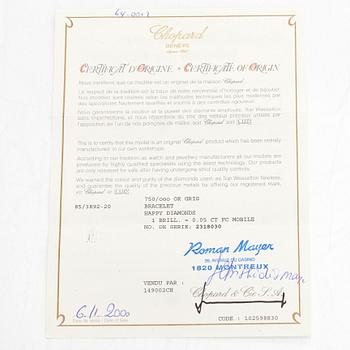 Chopard
GENÈVE
CERTIFICAT D'ORIGINE • CERTIFICATE OF ORIGIN
Nous certifions que ce modèle est un original de la maison Chopard.
Le respect de la tradition est à la base de notre renommée d'horloger et de bijoutier.
Nos modèles sont réalisés selon les méthodes techniques les plus modernes par
des spécialistes hautement qualifiés et soumis à des contrôles rigoureux.
Nous garantissons la couleur et la pureté des diamants employés, Top Wesselton
sans imperfections, et nous répondons du titre des métaux précieux utilisés par
l'apposition de l'un de nos poinçons de maître, soit Chopard soit
This is to certify that the model is an original Chopard product which has been entirely
manufactured in our own workshops.
According to our tradition as watch and jewellery manufacturers all our models are
produced by highly qualified specialists using the latest technology. Our products
are only released for sale after having undergone strict quality controls.
We warrant the colour and purity of the diamonds used, as Top Wesselton flawless,
and guarantee the quality of the precious metals by affixing our registered mark,
as Chopard or
750/000 OR GRIS
85/3892-20 BRACELET
HAPPY DIAMONDS
1 BRILL. = 0.05 CT FC MOBILE
NO. DE SERIE: 2318030
Roman Mayer
AVENUE DU CASINO
1820 MONTREUX
VENDU PAR :
149002CH
Chopard & Cie S.A.
6.11.2000
CODE : 102598830